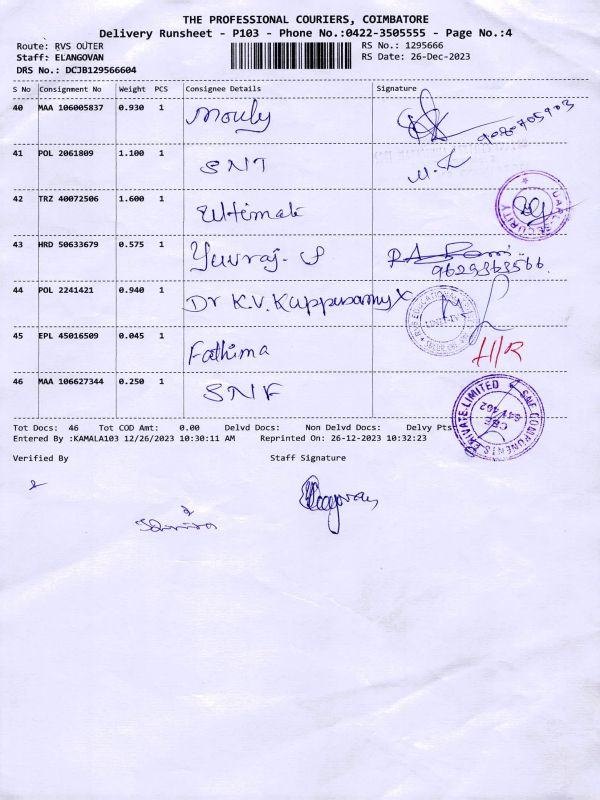 THE PROFESSIONAL COURIERS, COIMBATORE
Delivery Runsheet - P103 - Phone No.:0422-3505555 - Page No.:4
Route: RVS OUTER RS No.: 1295666
Staff: ELANGOVAN RS Date: 26-Dec-2023
DRS No.: DCJB129566604
S No Consignment No Weight PCS Consignee Details Signature
40 MAA 106005837 0.930 1 Mouly
41 POL 2061809 1.100 1 SNT
42 TRZ 40072506 1.600 1 Ultimate
SECURITY
43 HRD 50633679 0.575 1 Yuvraj. S
44 POL 2241421 0.940 1 Dr K.V. Kuppusamy X
45 EPL 45016509 0.045 1 Fathima
46 MAA 106627344 0.250 1 SNF
SNF COMPONENTS PRIVATE LIMITED
CBE
641 402
Tot Docs: 46 Tot COD Amt: 0.00 Delvd Docs: Non Delvd Docs: Delvy Pts
Entered By :KAMALA103 12/26/2023 10:30:11 AM Reprinted On: 26-12-2023 10:32:23
Verified By Staff Signature